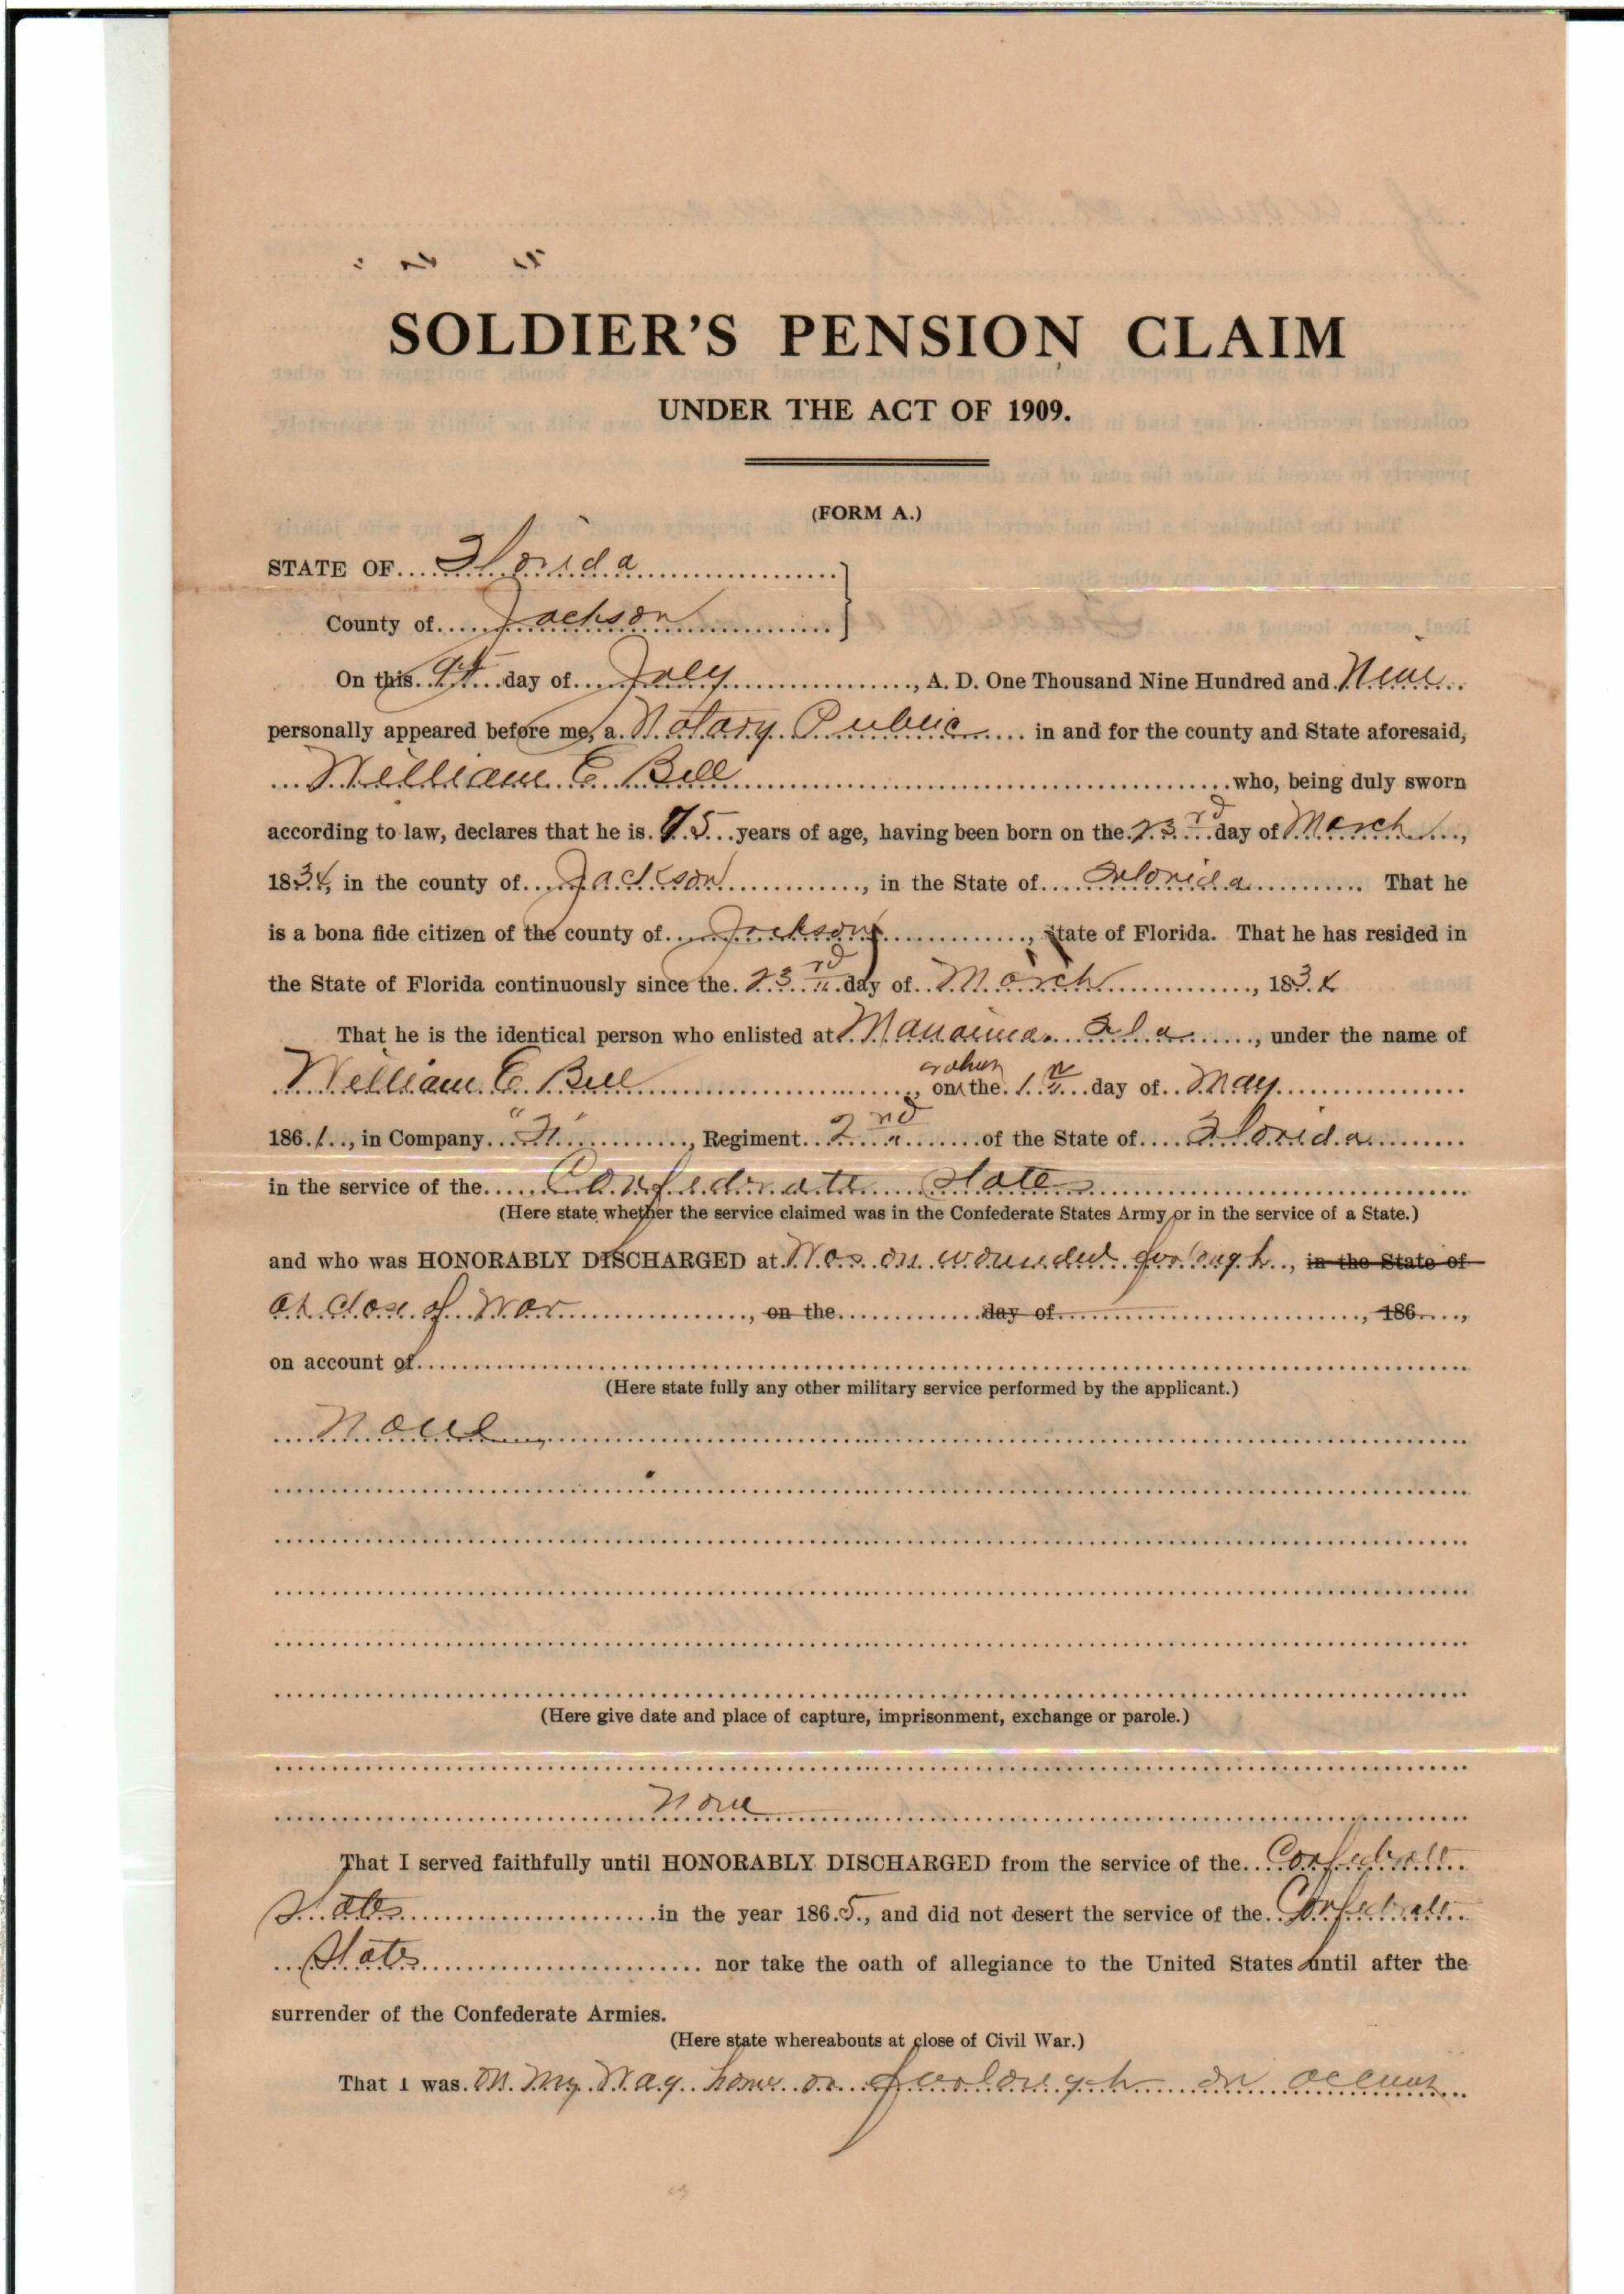 SOLDIER'S PENSION CLAIM
UNDER THE ACT OF 1909.
(FORM A.)
STATE OF Florida
County of Jackson
On this 9th day of July, A. D. One Thousand Nine Hundred and Nine
personally appeared before me, a Notary Public in and for the county and State aforesaid,
William C. Bell who, being duly sworn
according to law, declares that he is 75 years of age, having been born on the 23rd day of March,
1834, in the county of Jackson, in the State of Florida. That he
is a bona fide citizen of the county of Jackson, State of Florida. That he has resided in
the State of Florida continuously since the 23rd day of March, 1834
That he is the identical person who enlisted at Marianna Fla, under the name of
William C. Bell, on the 1st day of May
1861, in Company , Regiment 2nd of the State of Florida
in the service of the Confederate States
(Here state whether the service claimed was in the Confederate States Army or in the service of a State.)
and who was HONORABLY DISCHARGED at Was on wounded forlough, in the State of
at close of War, on the day of, 186,
on account of
(Here state fully any other military service performed by the applicant.)
None
(Here give date and place of capture, imprisonment, exchange or parole.)
None
That I served faithfully until HONORABLY DISCHARGED from the service of the Confederate
States in the year 1865, and did not desert the service of the Confederate
States nor take the oath of allegiance to the United States until after the
surrender of the Confederate Armies.
(Here state whereabouts at close of Civil War.)
That I was on My Way home on forlough on account